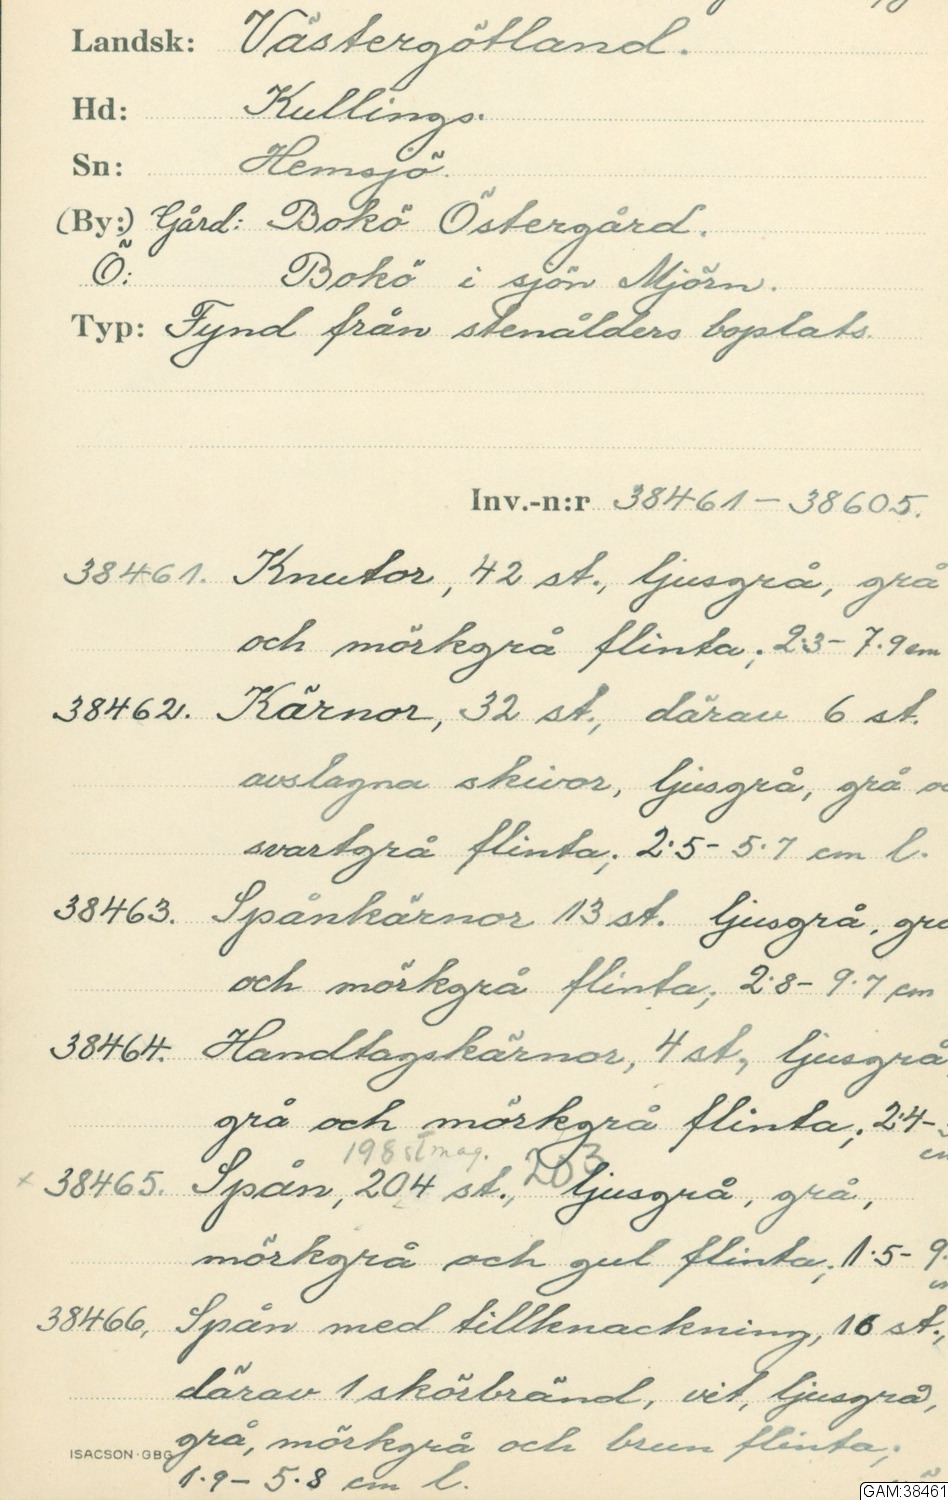 Landsk: Västergötland.
Hd: Kullings.
Sn: Hemsjö.
(By:) Gård: Bokö Östergård.
Ö: Bokö i sjön Mjörn.
Typ: Fynd från stenålders boplats.
Inv.-n:r 38461 – 38605.
38461. Knutor, 42 st., ljusgrå, grå
och mörkgrå flinta; 2.3 – 7.9 cm
38462. Kärnor, 32 st., därav 6 st.
avslagna skivor, ljusgrå, grå o
svartgrå flinta; 2.5 – 5.7 cm l.
38463. Spånkärnor 13 st. ljusgrå, gr
och mörkgrå flinta; 2.8 – 9.7 cm
38464. Handtagskärnor, 4 st., ljusgrå,
grå och mörkgrå flinta; 2.4 –
198 st mag. 203
x 38465. Spån, 204 st., ljusgrå, grå,
mörkgrå och gul flinta; 1.5 – 9.
38466. Spån med tillknackning, 16 st.,
därav 1 skörbränd, vit, ljusgrå,
grå, mörkgrå och brun flinta;
1.9 – 5.8 cm l.
ISACSON · GBG
GAM:38461